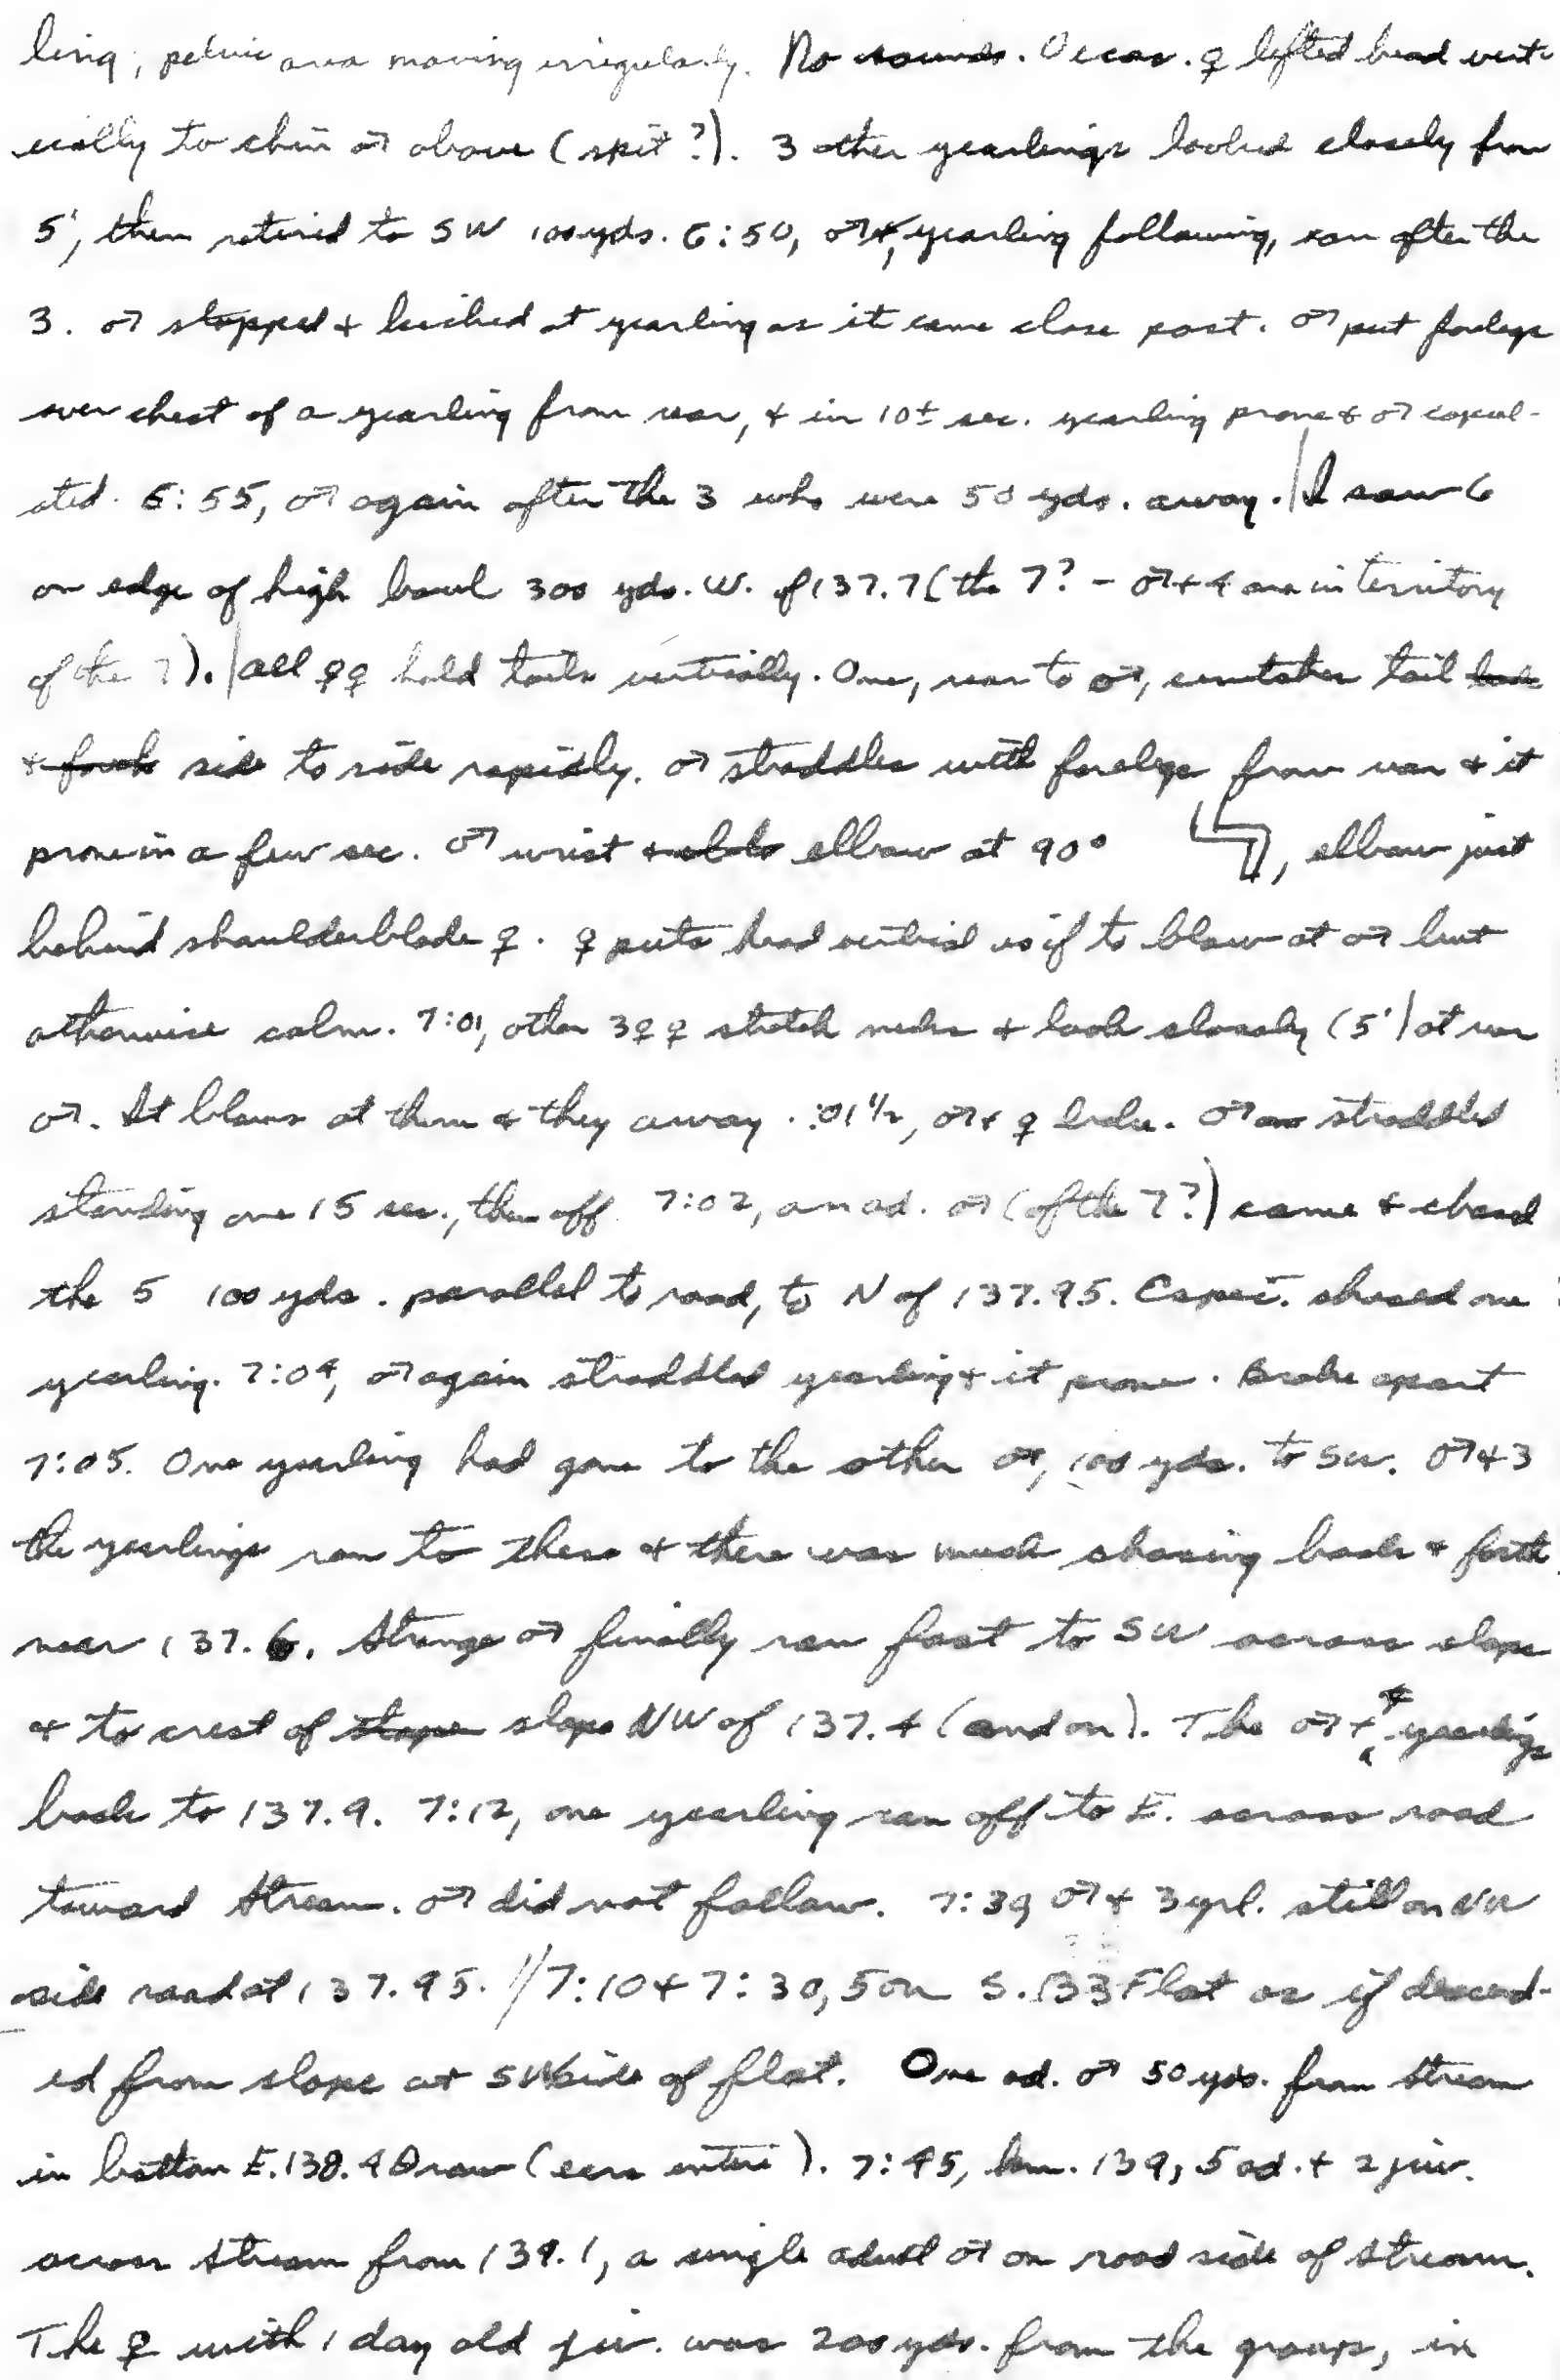 ling; pelvic area moving irregularly. No sounds. Occas. ♀ lifted head verti-
cally to chin ♂ above (spit?). 3 other yearlings looked closely from
5', then retired to SW 100 yds. 6:50, ♂ + yearling following, ran after the
3. ♂ stopped + kicked at yearling as it came close past. ♂ put forelegs
over chest of a yearling from rear, + in 10± sec. yearling prone + ♂ copul-
ated. 6:55, ♂ again after the 3 who were 50 yds. away. | I saw 6
on edge of high bowl 300 yds. W. of 137.7 (the 7? - ♂ + 4 are in territory
of the 7). | All ♀♀ hold tails vertically. One, rear to ♂, switches tail back
+ forth side to side rapidly. ♂ straddles with forelegs from rear + it
prone in a few sec. ♂ wrist + elbow at 90°, elbow just
behind shoulderblade ♀. ♀ puts head vertical as if to blow at ♂ but
otherwise calm. 7:01, other 3 ♀♀ stretch necks + look closely (5') at rear
♂. It blows at them + they away. :01½, ♂ + ♀ broke. ♂ straddled
standing one 15 sec., then off. 7:02, an ad. ♂ (of the 7?) came + chased
the 5 100 yds. parallel to road, to N of 137.95. Espec. chased one
yearling. 7:04, ♂ again straddled yearling + it prone. Broke apart
7:05. One yearling had gone to the other ♂, 100 yds. to SW. ♂ + 3
the yearlings ran to these + there was much chasing back + forth
near 137.6. Strange ♂ finally ran fast to SW across slope
+ to crest of slope slope NW of 137.4 (and on). The ♂ + 4 yearlings
back to 137.9. 7:12, one yearling ran off to E. across road
toward stream. ♂ did not follow. 7:39 ♂ + 3 yrl. still on NW
side road at 137.95. // 7:10 + 7:30, 5 on S. 133 Flat as if descend-
ed from slope at SW side of flat. One ad. ♂ 50 yds. from stream
in bottom E. 138.4 Draw (ears entire). 7:45, km. 139, 5 ad. + 2 juv.
across stream from 139.1, a single adult ♂ on road side of stream.
The ♀ with 1 day old juv. was 200 yds. from the group, in